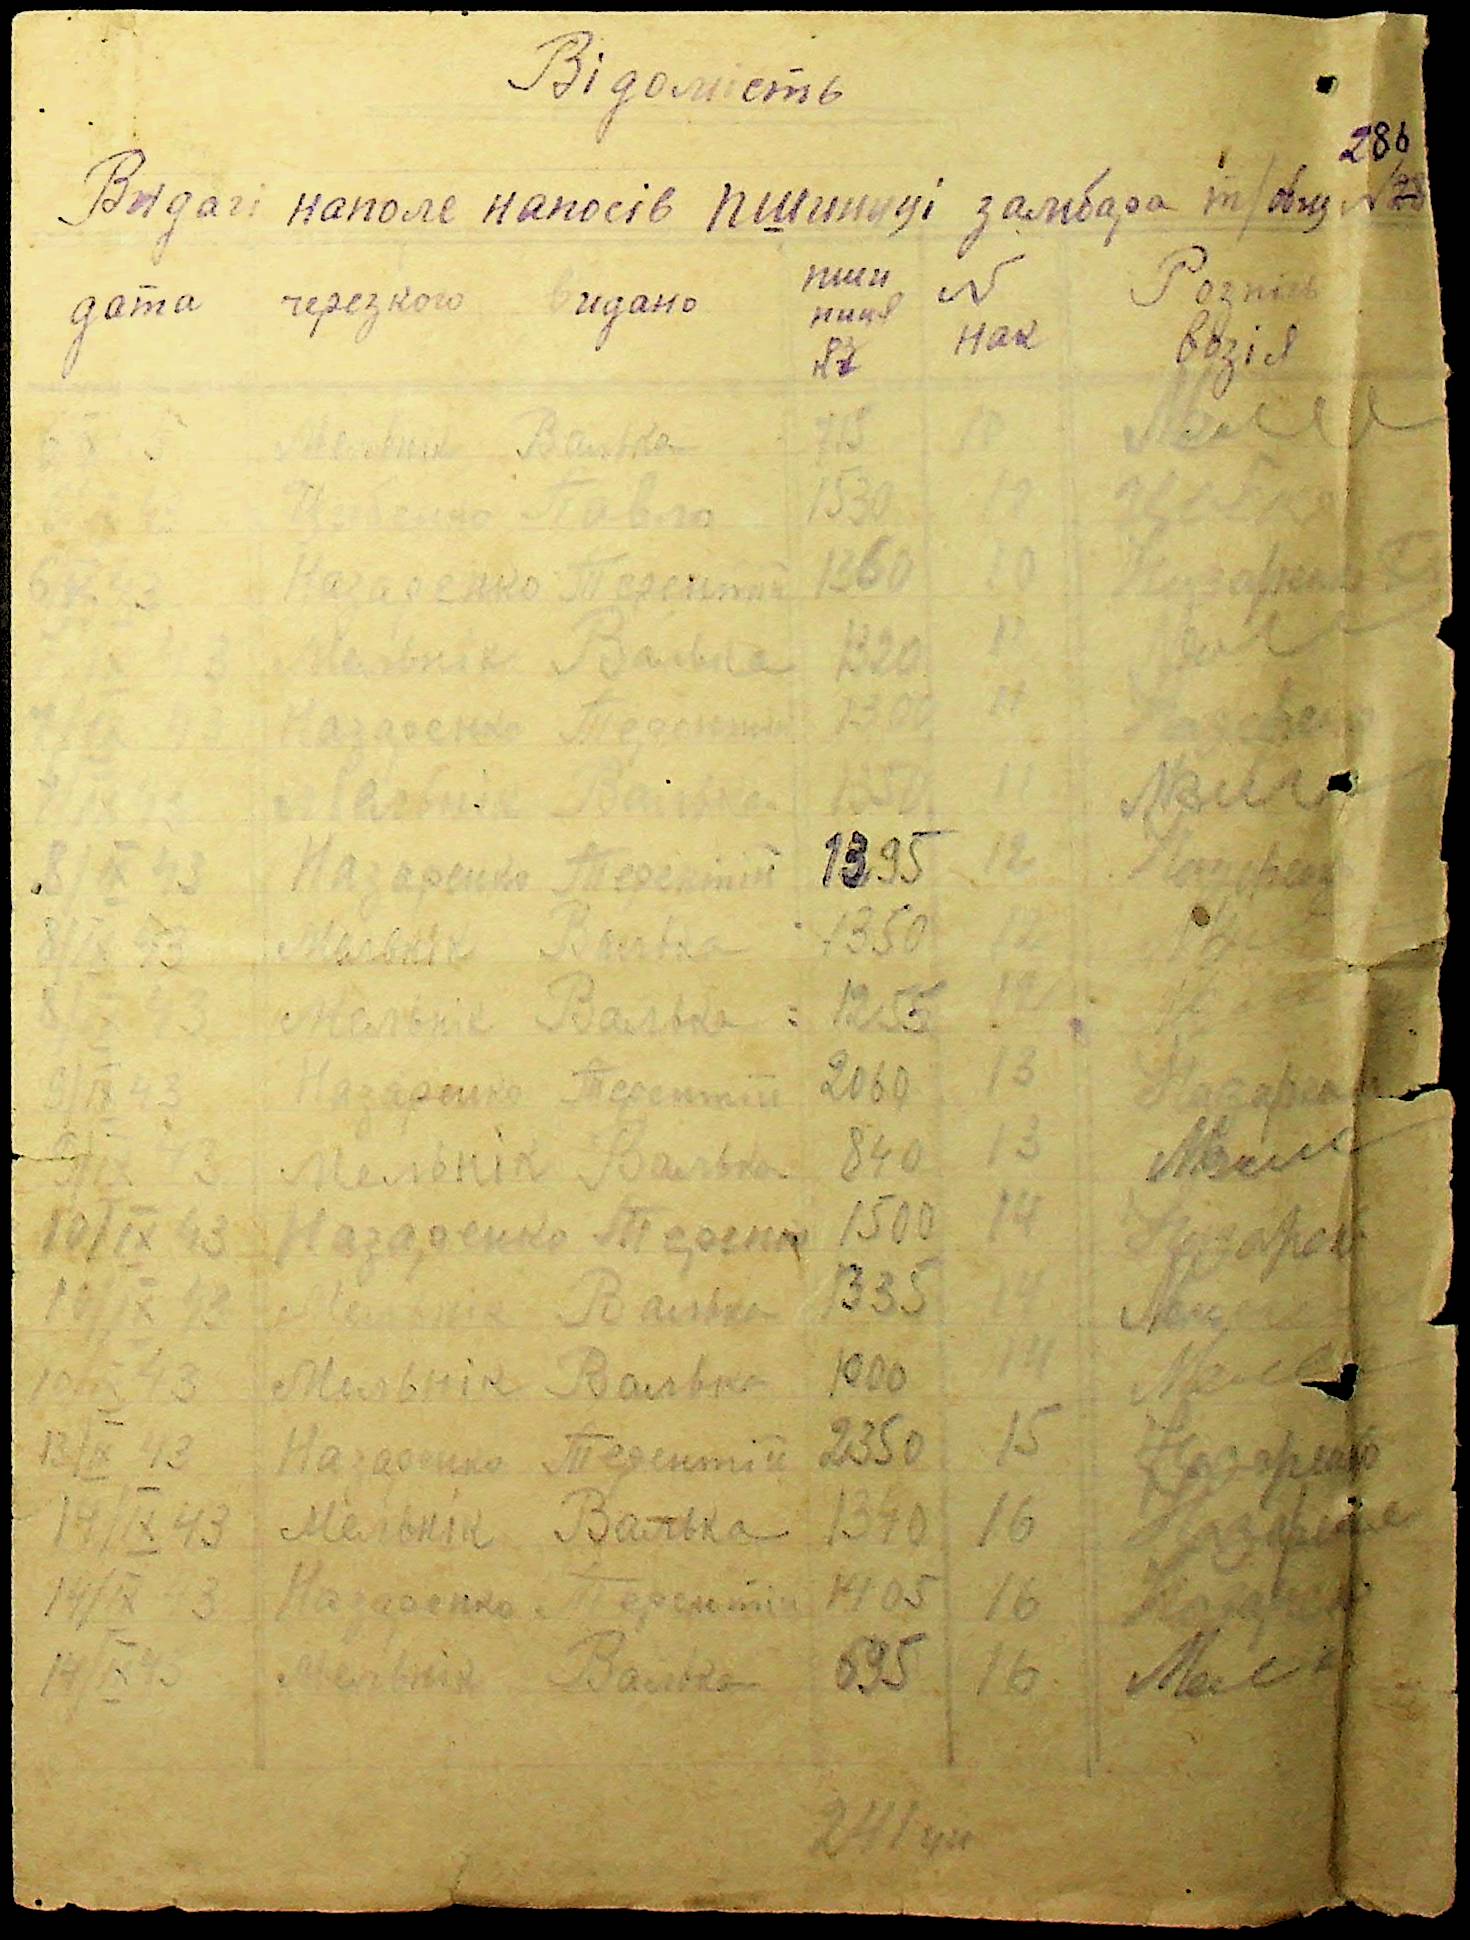 Відомість
286
Видачі наполе напосів пшиниці замбара т/общ №78
дата черезкого видано пши ниця кг N нак Розпись возія
Мельник Валька 10
Павло 1530 10
6 IX 43 Назаренко Терентій 1360 10
Мельнік Валька 1320 11
7/IX 43 Назаренко Терентій 1300 11
7/IX 43 Мельнік Валька 1350 11
8/IX 43 Назаренко Терентій 1395 12 Назаренко
8/IX 43 Мельнік Валька 1350 12
8/IX 43 Мельнік Валька 1255 12
9/IX 43 Назаренко Терентій 2060 13 Назаренко
9/IX 43 Мельнік Валька 840 13
10/IX 43 Назаренко Терент 1500 14 Назарен
10/IX 43 Мельнік Валька 1335 14
10/IX 43 Мельнік Валька 1000 14
13/IX 43 Назаренко Терентій 2350 15 Назаренко
14/IX 43 Мельнік Валька 1340 16
14/IX 43 Назаренко Терентій 1405 16
14/IX 43 Мельнік Валька 695 16
241 цн